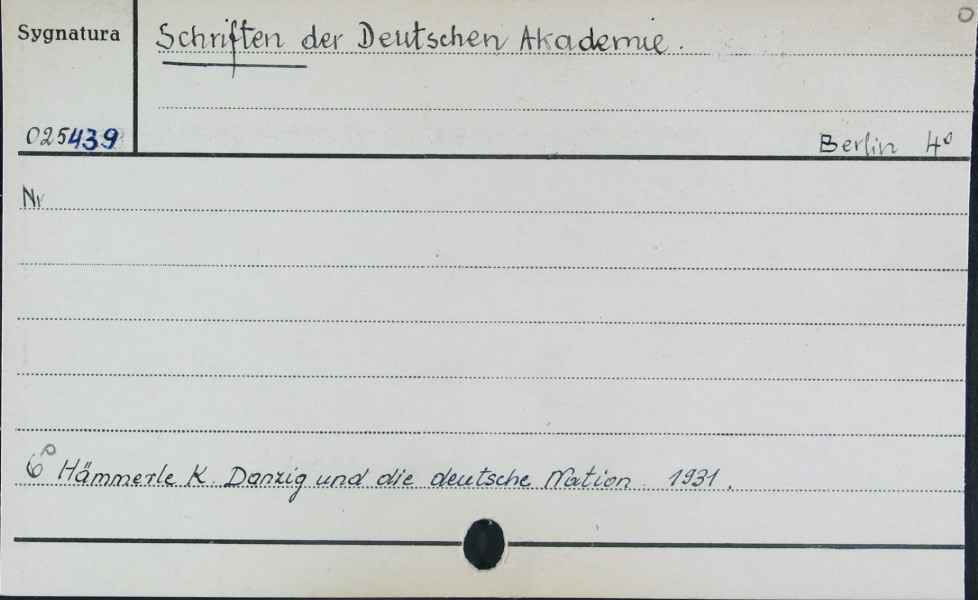 Sygnatura
Schriften der Deutschen Akademie.
025439
Berlin 4°
Nr
6 Hämmerle K. Danzig und die deutsche Nation. 1931.